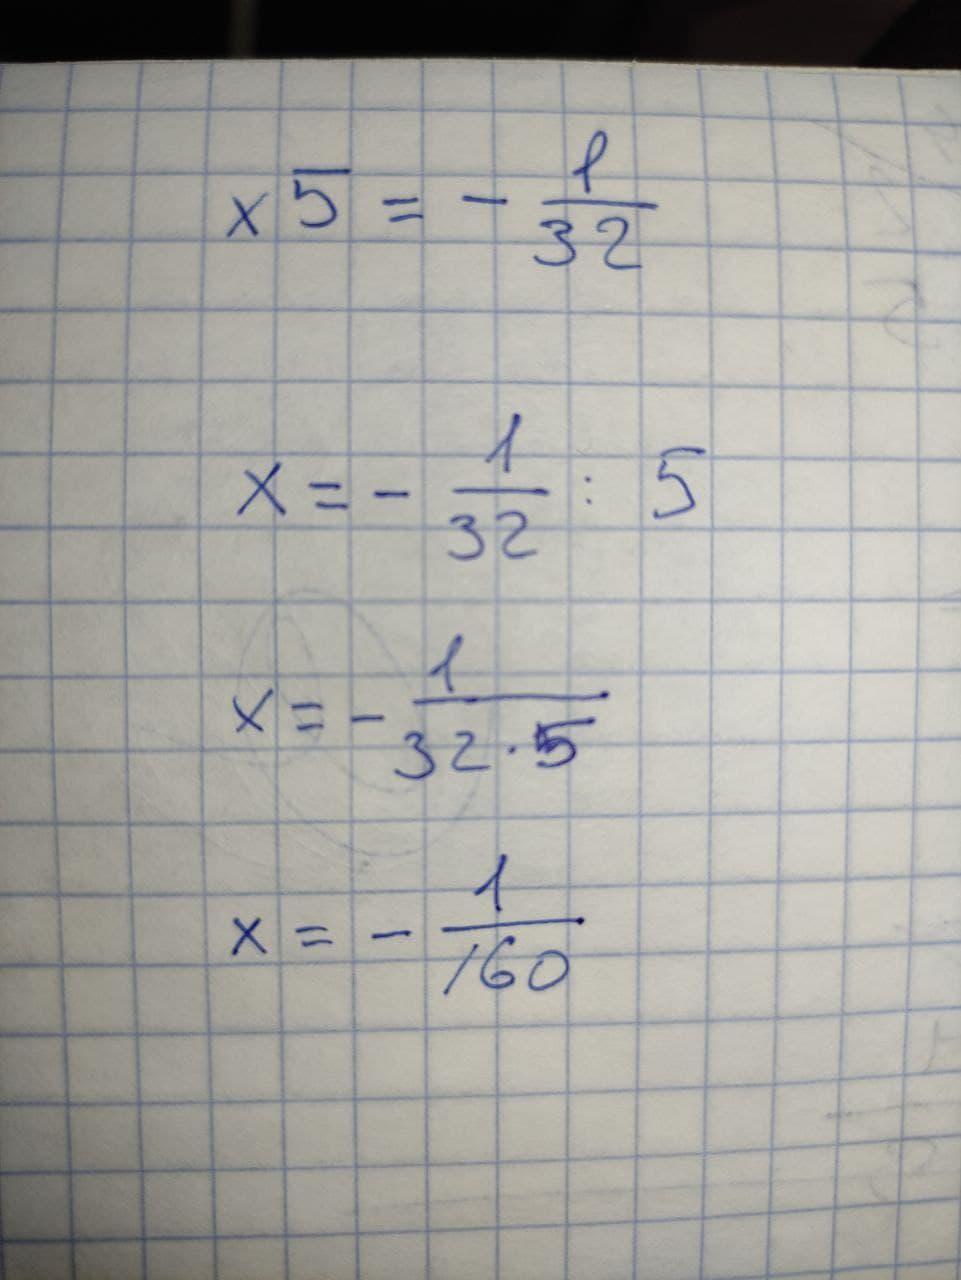 x5 = - 1/32
x = - 1/32 : 5
x = - 1/(32 · 5)
x = - 1/160